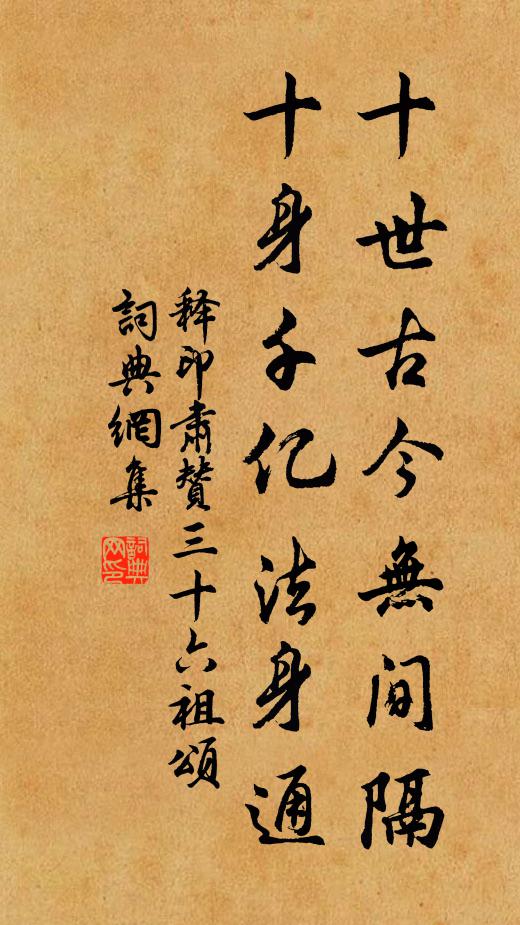 十世古今無间隔
十身千亿法身通
释印肃贊三十六祖頌
詞典網集
詞典网印